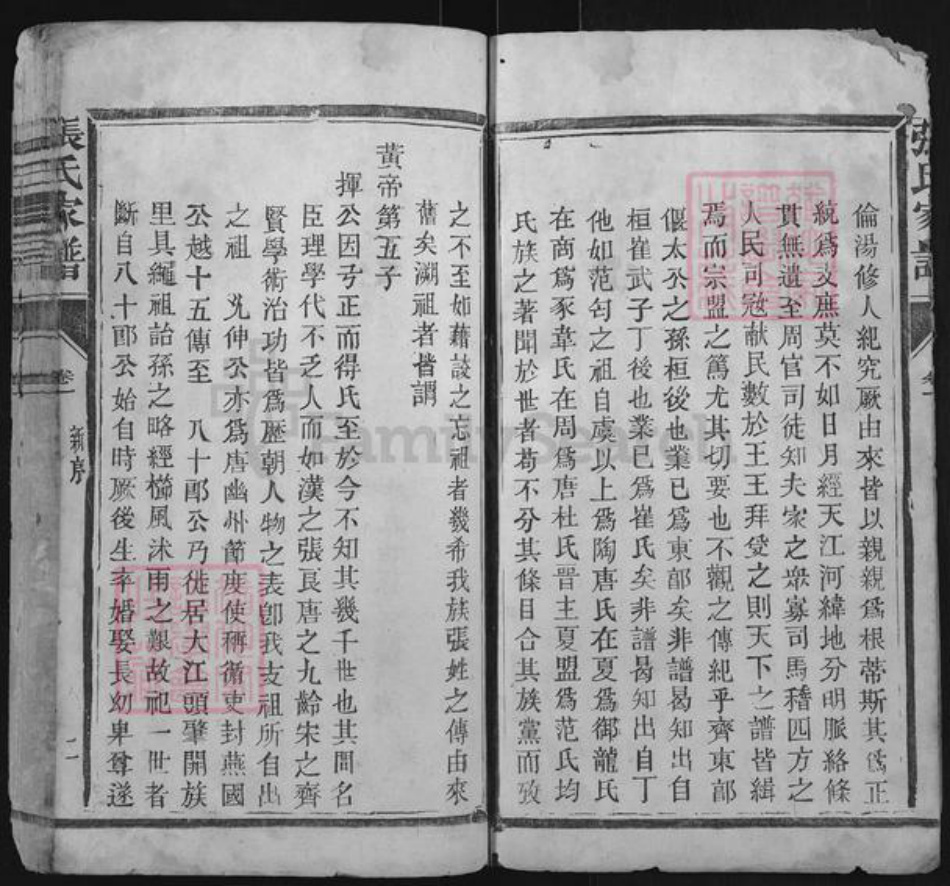 倫湯修人紀究厥由來皆以親親爲根蒂斯其爲正
統爲支庶莫不如日月經天江河緯地分明脈絡條
貫無遺至周官司徒知夫家之衆寡司馬稽四方之
人民司寇献民數於王王拜受之則天下之譜皆緝
焉而宗盟之篤尤其切要也不觀之傳紀乎齊東郭
偃太公之孫桓後也業已爲東郭矣非譜曷知出自
桓崔武子丁後也業已爲崔氏矣非譜曷知出自丁
他如范匄之祖自虞以上爲陶唐氏在夏爲御龍氏
在商爲豕韋氏在周爲唐杜氏晋主夏盟爲范氏均
氏族之著聞於世者苟不分其條目合其族黨而攷
之不至如藉談之忘祖者幾希我族張姓之傳由來
舊矣溯祖者皆謂
黃帝第五子
揮公因弓正而得氏至於今不知其幾千世也其間名
臣理學代不乏人而如漢之張良唐之九齡宋之齊
賢學術治功皆爲歷朝人物之表卽我支祖所自出
之祖 允伸公亦爲唐幽州節度使稱循吏封燕國
公越十五傳至 八十郎公乃徙居大江頭肇開族
里具繩祖詒孫之略經櫛風沐雨之艱故祀一世者
斷自八十郎公始自時厥後生卒婚娶長幼卑尊遂
張氏家譜
卷一
新序
二
張氏家譜
卷一
FamilySearch